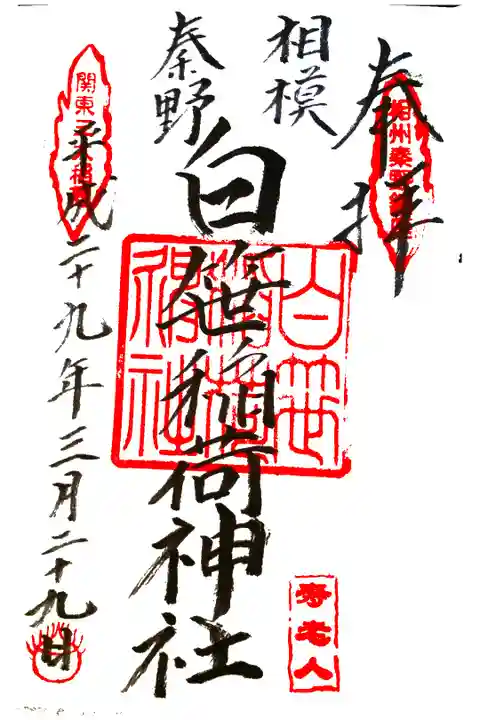 奉拝
相州秦野鎮座
相模
秦野
白笹稲荷神社
白笹稲荷神社
関東三大稲荷
平成二十九年三月二十九日
寿老人